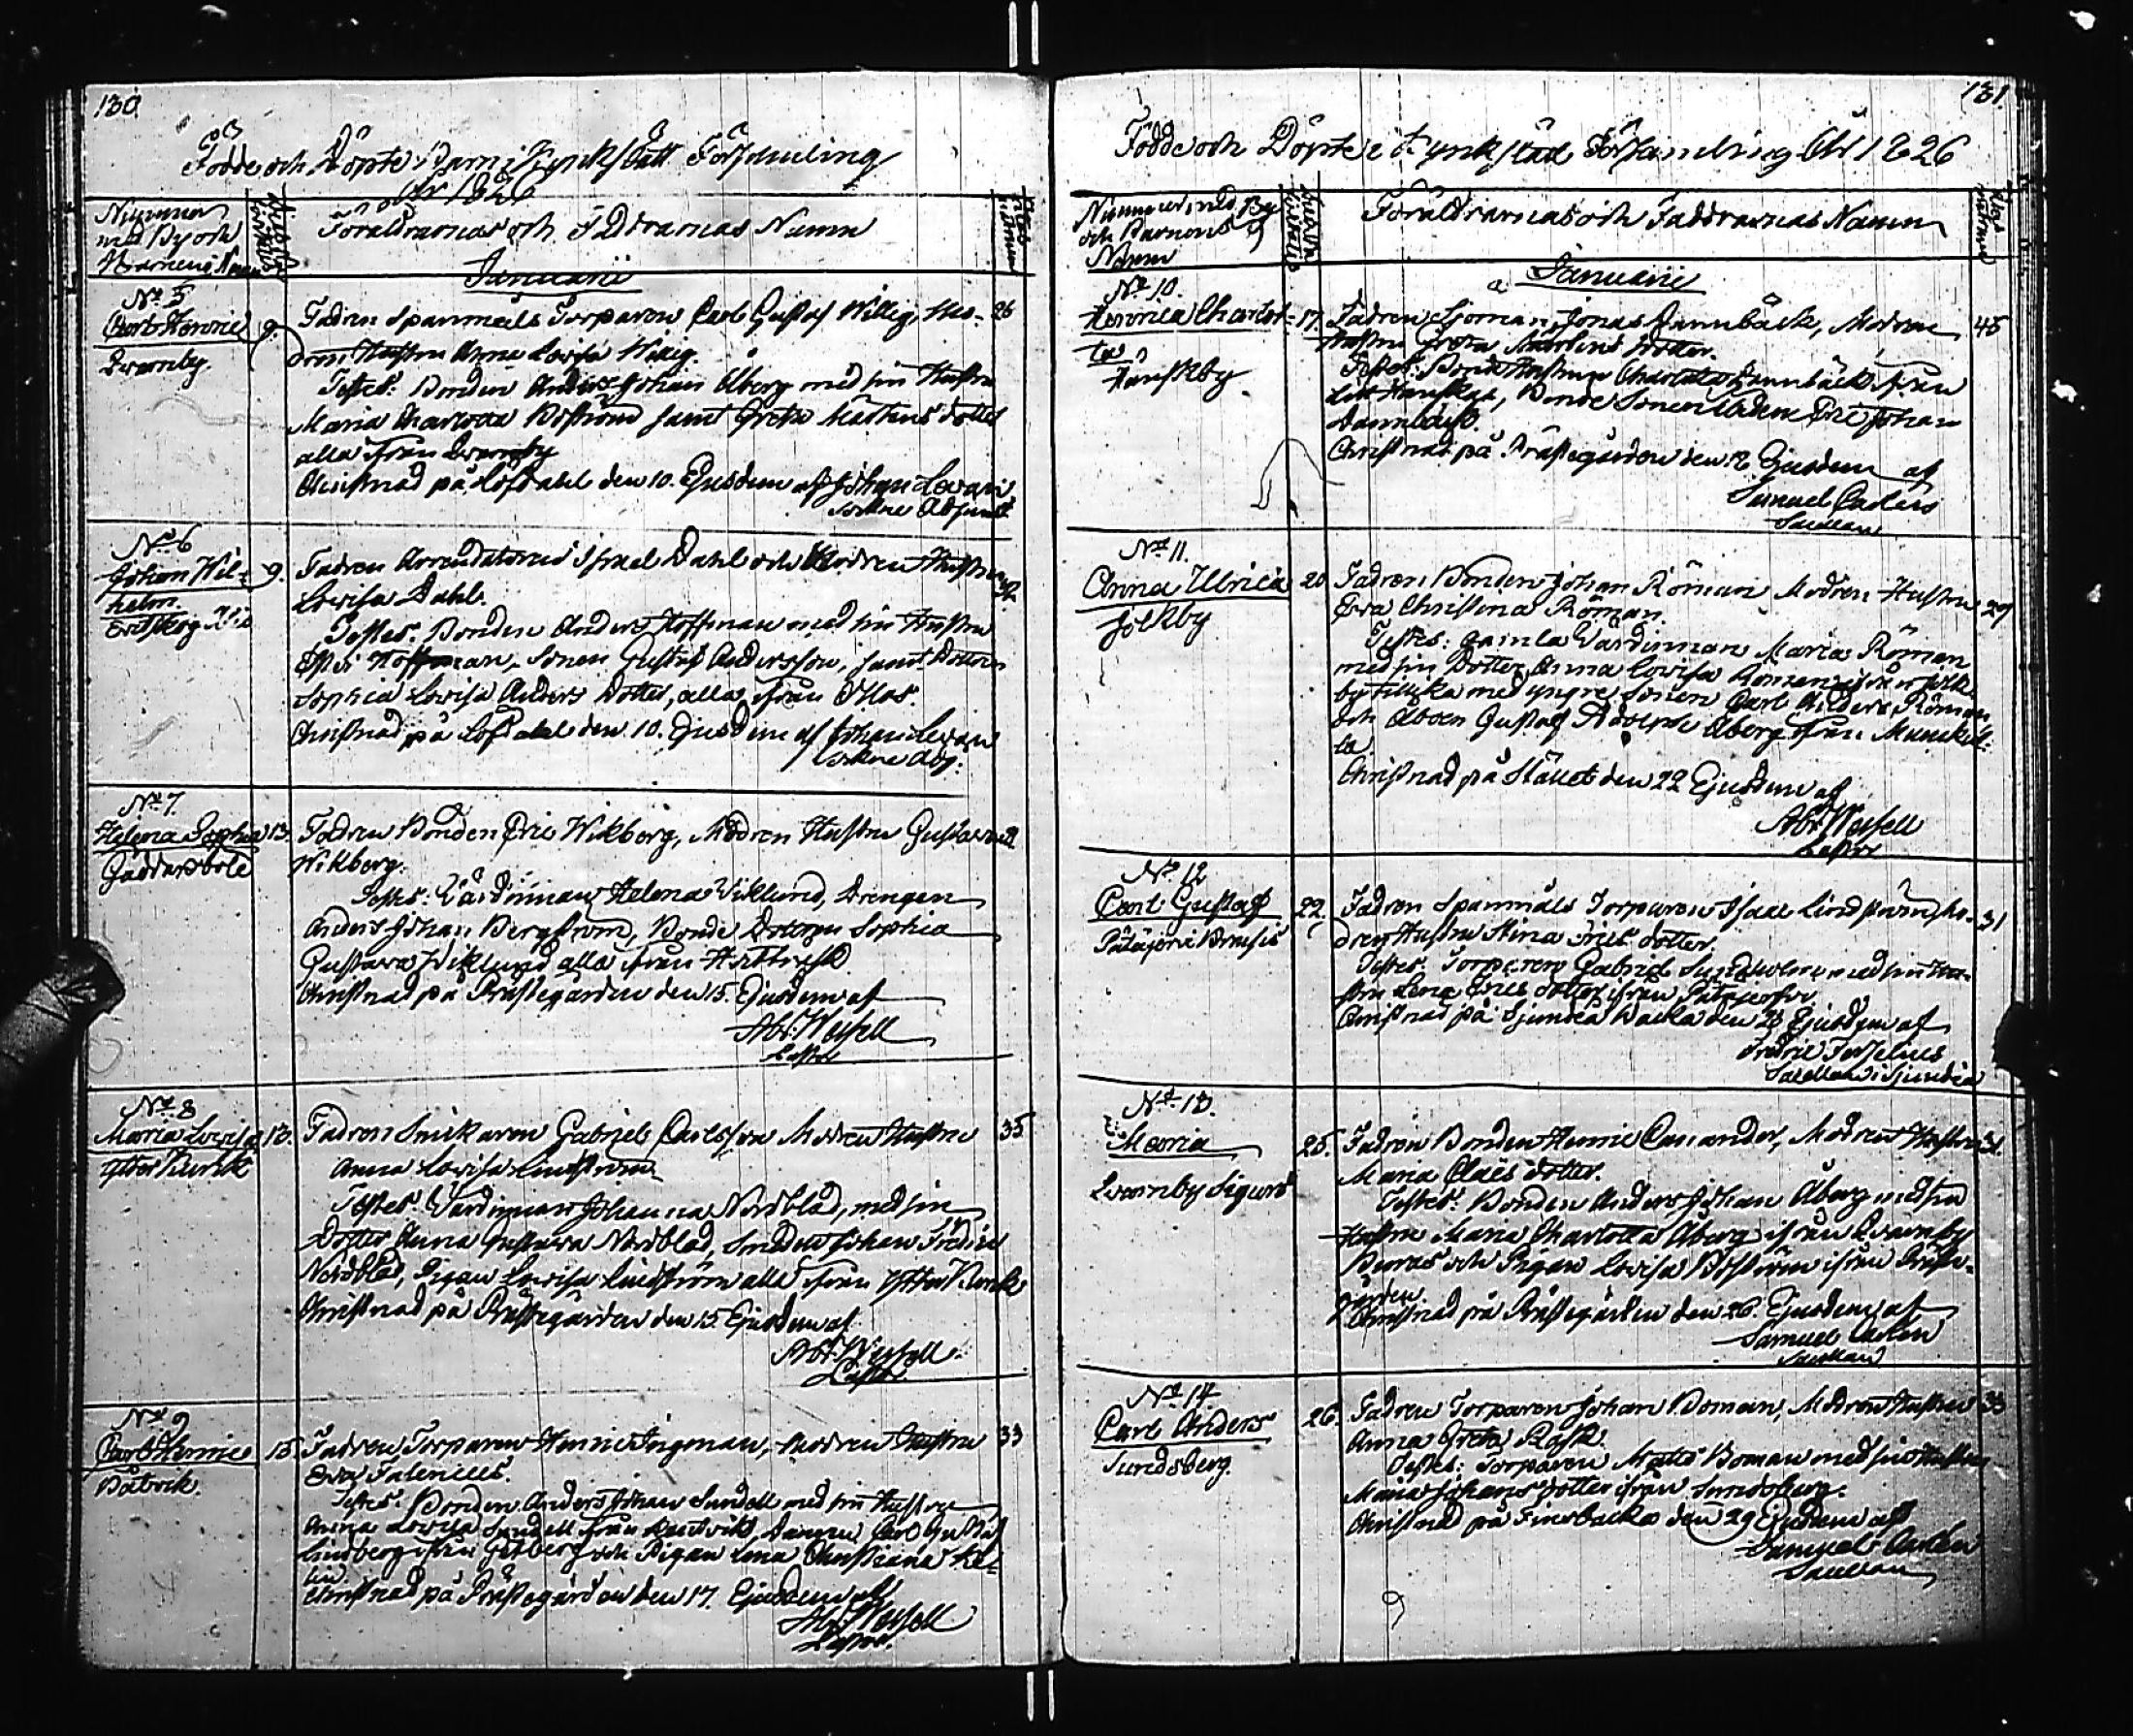 130.
Födde och Döpte Barn i Kyrkslätt Församling
År 1826
Nummer
med By och
Barnens Namn
Föräldrarnas och Faddrarnas Namn
Januarii
No 5
Carl Henric
Qvarnby.
9.
Fadren Spanmåls Torparen Carl Gustaf Willig, Mo- 26
dren Hustru Anna Lovisa Willig.
Testes: Bonden Anders Johan Åberg med sin Hustru
Maria Charlotta Boström samt Greta Mårtens dotter
alla från Qvarnby
Christnad på Löfdahl den 10. Ejusdem af Johan Levan
Sockne Adjunct
No 6
Johan Wil-
helm.
9.
Fadren Arrendatorn Israel Dahl och Modren Hustru
Lovisa Dahl.
Testes: Bonden Anders Hoffman med sin Hustru
Hoffman, Sonen Gustaf Andersson, samt Dottren
Sophia Lovisa Anders Dotter, alla från
Christnad på Löfdahl den 10. Ejusdem af Johan Levan
Sockne Adj.
No 7.
Helena Sophia 13.
Gäddarsböle
Fadren Bonden Eric Wikberg, Modren Hustru Gustava
Wikberg.
Testes: Värdinnan Helena Wiklund, Drengen
Anders Johan Bergström, Bonde Dottren Sophia
Gustava Wiklund alla från
Christnad på Prästegården den 15. Ejusdem af
Abr: Wessell
Pastor
No 8
Maria Lovisa 13.
Ytter Kurck
Fadren Snickaren Gabriel Carlsson Modren Hustru 35
Anna Lovisa Lindström
Testes: Värdinnan Johanna Nordblad, med sin
Dotter Anna Gustava Nordblad, Smeden Johan Fredric
Nordblad, Pigan Lovisa Lindström alla från Ytter Kurck
Christnad på Prästegården den 15. Ejusdem af
Abr: Wessell
Pastor
No 9
Carl Henric 15
Båtvik.
Fadren Torparen Henric Ingman, Modren Hustru 33
Eva Falenius.
Testes: Bonden Anders Johan Sundell med sin Hustru
Anna Lovisa Sundell från Carl Gustaf
Lindberg från och Pigan Lena Christiana
Christnad på Prästegården den 17. Ejusdem af
Abr: Wessell
Pastor
131.
Födde och Döpte i Kyrkslätt Församling År 1826
Nummer, med By
och Barnens
Namn
Föräldrarnas och Faddrarnas Namn
Januarii
No 10.
Henrica Charlot- 17.
ta
Fadren Sjöman Jonas Dannbäck, Modren 45
Hustru Greta Mårtens dotter.
Testes: Bonde Hustrun Charlotta Dannbäck från
Bonde Sonen Eric Johan
Dannbäck.
Christnad på Prästegården den 18 Ejusdem af
Samuel Carlens
Sacellan
No 11.
Anna Ulrica
Jolkby
20
Fadren Bonden Johan Röman Modren Hustru 29
Eva Christina Röman.
Testes: gamla Värdinnan Maria Röman
med sin Dotter Anna Lovisa Röman ifrån Jolk-
by tillika med yngre Sonen Carl Anders Röman,
och Gustaf Adolph Åberg från Munkul-
la
Christnad på Stället den 22 Ejusdem af
Abr: Wessell
Pastor
No 12
Carl Gustaf
22.
Fadren Spanmåls Torparen Isaac Lindström, Mo- 31
dren Hustru Stina Erics dotter.
Testes: Torparen Gabriel Sundholm med sin Hu-
stru Lena Erics dotter ifrån
Christnad på Sjundeå Backa den 23 Ejusdem af
Fredric Forselius
Sacellan i Sjundeå
No 13.
Maria
Qvarnby Sigurs
25.
Fadren Bonden Henric Casander, Modren Hustru 31.
Maria Claës dotter.
Testes: Bonden Anders Johan Åberg med sin
Hustru Maria Charlotta Åberg ifrån Qvarnby
och Pigan Lovisa Boström ifrån Präste-
gården.
Christnad på Prästegården den 26. Ejusdem af
Samuel Carlen
Sacellan
No 14
Carl Anders
Sundsberg.
26.
Fadren Torparen Johan Boman, Modren Hustru 33
Anna Greta Rask.
Testes: Torparen Matts Boman med sin Hustru
Maria Johans dotter ifrån Sundsberg.
Christnad på Finsbacka den 29 Ejusdem af
Samuel Carlen
Sacellan